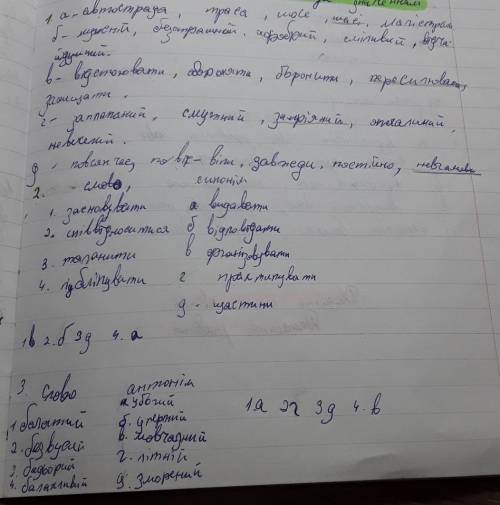 1. а - автострада, траса, шосе, шлях, магістраль
б - мужній, безстрашний, хоробрий, сміливий, відча-
йдушний.
в - відстоювати, обороняти, боронити, пересилювати,
захищати.
г - заплаканий, смутний, захмріяний, печальний,
невеселий.
д - повсякчас, по вік-віки, завжди, постійно,
2. - слово, синонім
1. засновувати а видавати
2. співвідноситися б відповідати
3. таланити в організовувати
4. публікувати г практикувати
д - щастити
1в 2.б 3д 4.а
3. Слово антонім
а убогий
1. багатий б.
2. безвусий в. мовчазний
3. бадьорий г. літній
4. балакливий д. зморений
1а 2г 3д 4.в